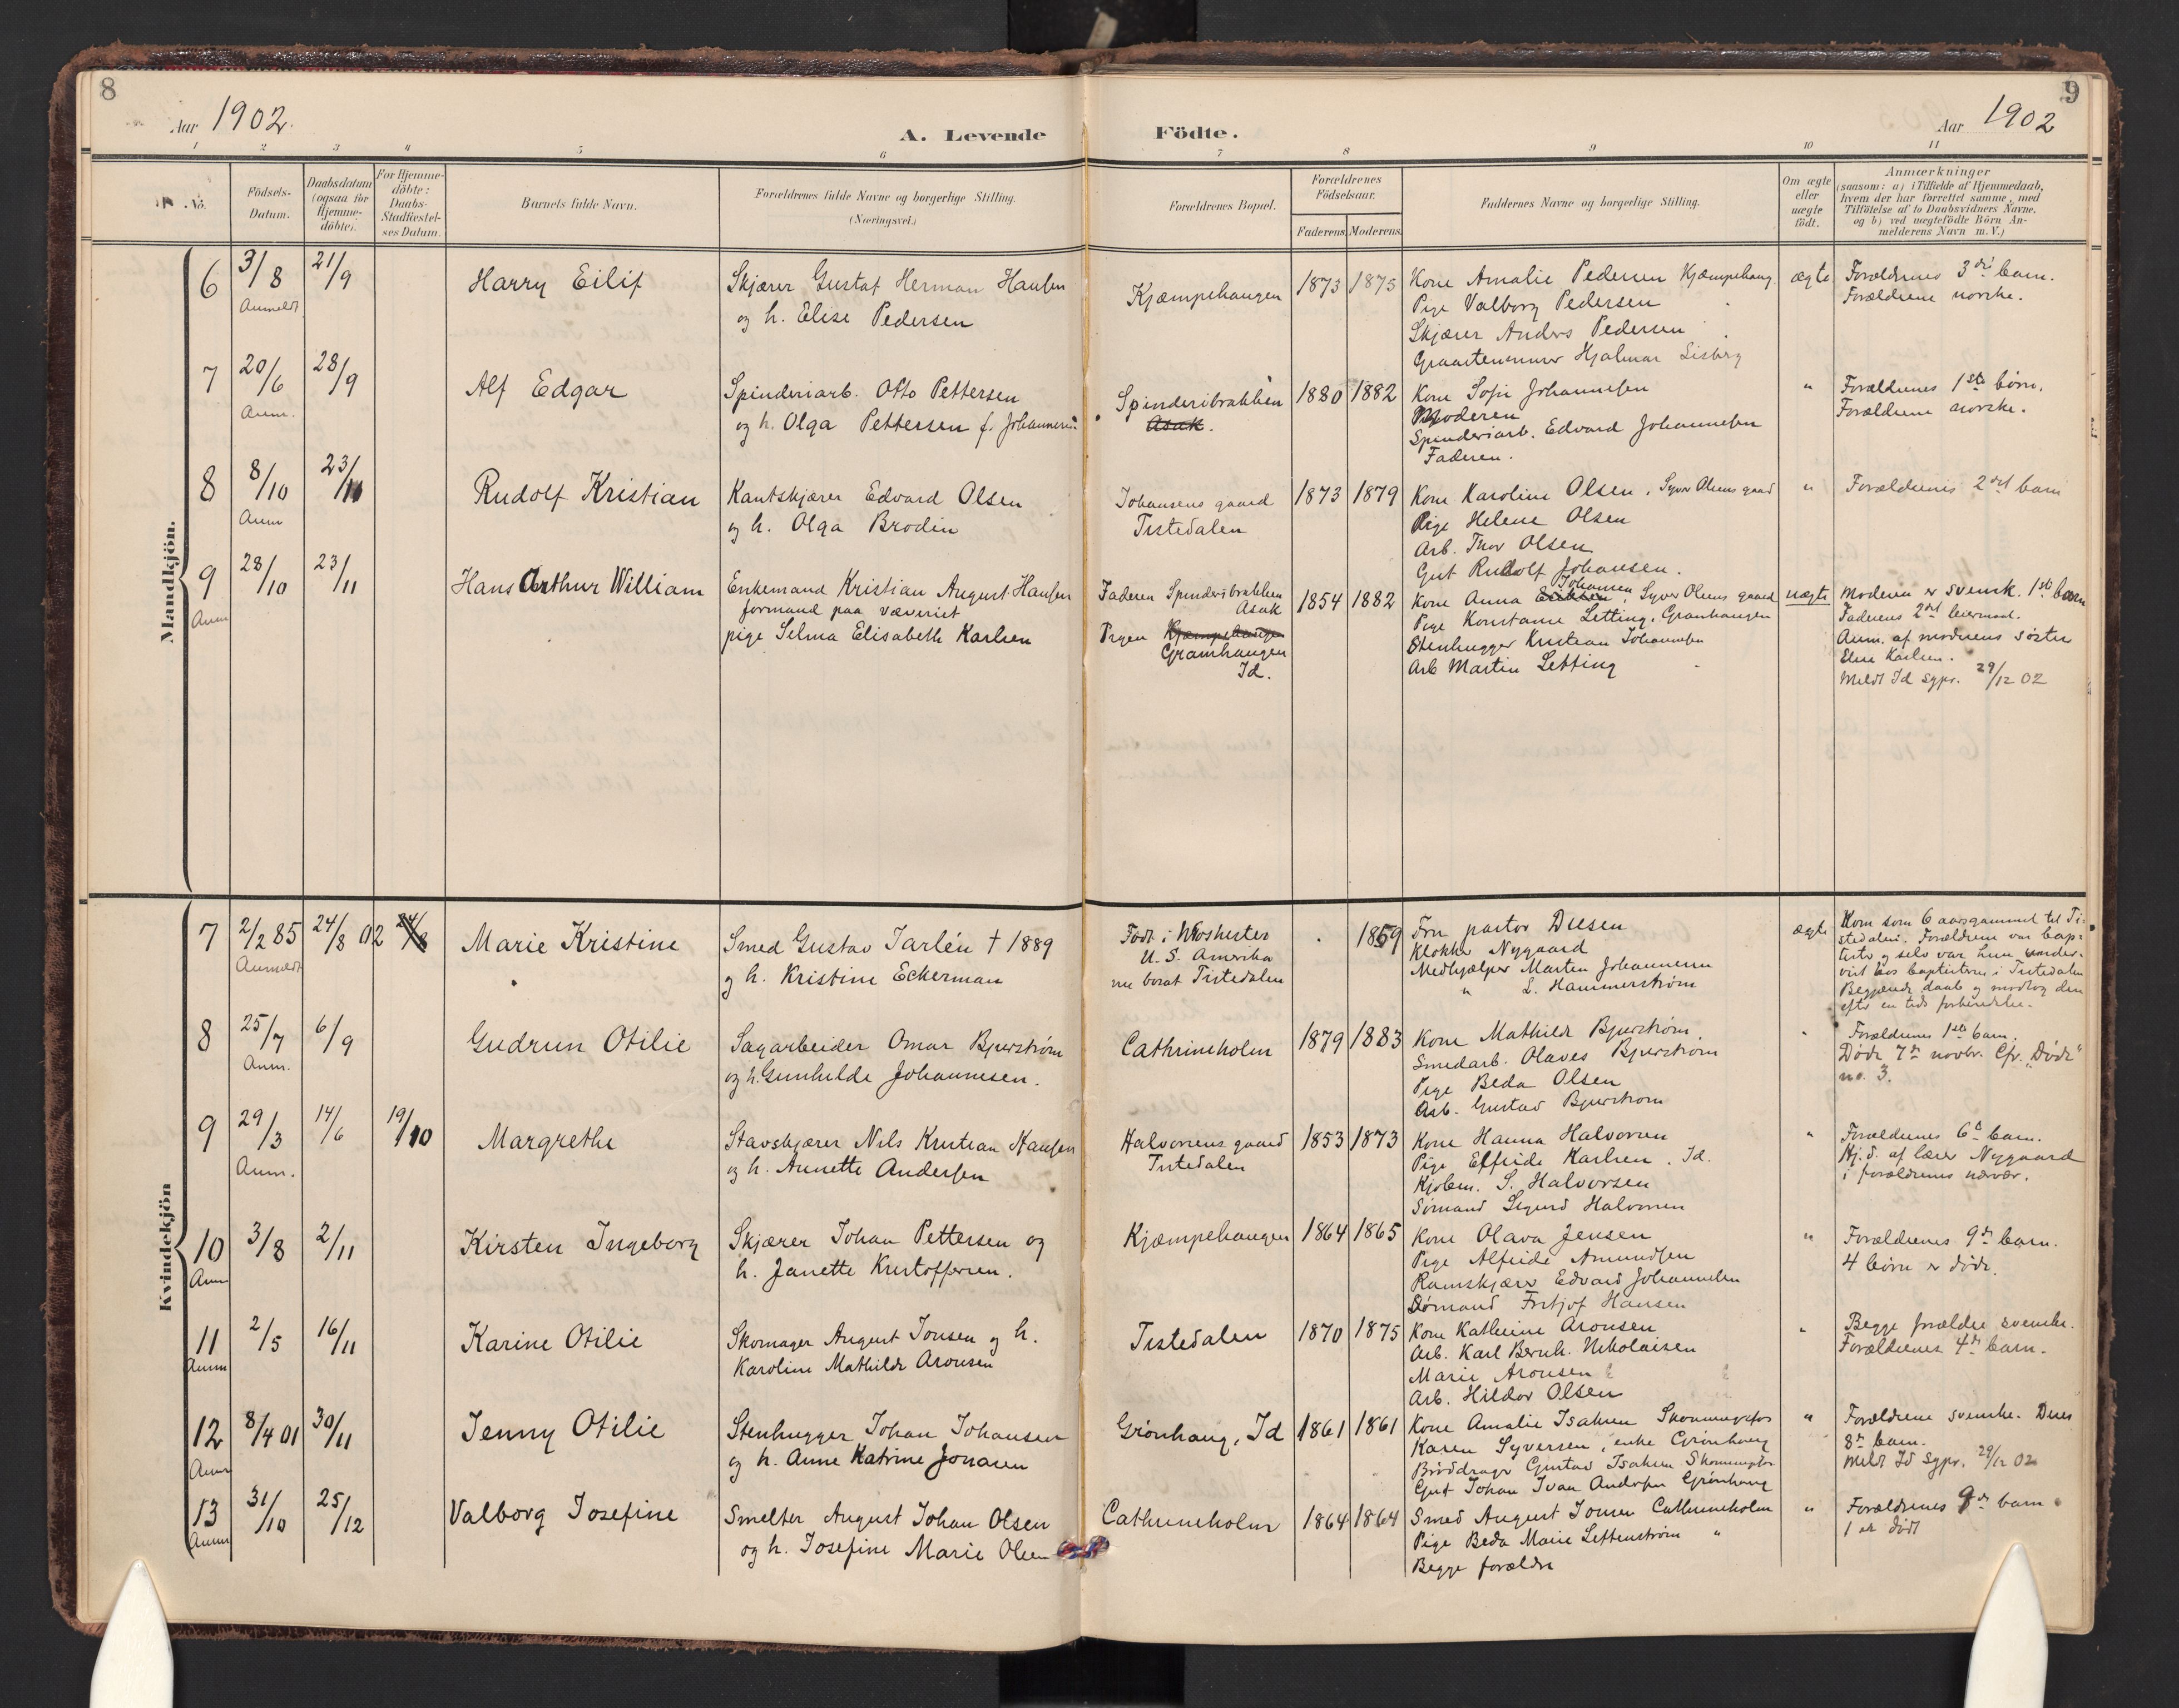 8
Aar 1902.
A. Levende
Födte.
Aar 1902
9
1 2 3 4 5 6 7 8 9 10 11
No.
Födsels-
Datum.
Daabsdatum
(ogsaa for
Hjemme-
döbte).
For Hjemme-
döbte:
Daabs-
Stadfæstel-
ses Datum.
Barnets fulde Navn.
Forældrenes fulde Navne og borgerlige Stilling.
(Næringsvei.)
Forældrenes Bopæl.
Forældrenes
Födselsaar.
Faderens. Moderens.
Faddernes Navne og borgerlige Stilling.
Om ægte
eller
uægte
födt.
Anmærkninger
(saasom: a) i Tilfælde af Hjemmedaab,
hvem der har forrettet samme, med
Tilföielse af to Daabsvidners Navne.
og b) ved uægtefödte Börn An-
melderens Navn m. V.)
Mandkjön.
6 3/8 21/9
Anmeldt
Harry Eilif
Skjærer Gustaf Herman Hansen
og h. Elise Pedersen
Kjæmpehaugen
1873 1875
Kone Amalie Pedersen Kjæmpehaug.
Pige Valborg Pedersen
Skjærer Anders Pedersen
Hjalmar Lisberg
ægte
Forældrenes 3die barn.
Forældrene norske.
7 20/6 28/9
Anm.
Alf Edgar
Spinderiarb. Otto Pettersen
og h. Olga Pettersen f. Johannesen
Spinderibrakken
Asak.
1880 1882
Kone Sofie Johannesen
Moderen
Spinderiarb. Edvard Johannesen
Faderen.
"
Forældrenes 1ste børn.
Forældrene norske.
8 8/10 23/11
Anm
Rudolf Kristian
Kantskjærer Edvard Olsen
og h. Olga Brodin
Johansens gaard
Tistedalen
1873 1879
Kone Karoline Olsen, Syver Olsens gaard
Pige Helene Olsen
Arb. Thor Olsen
Gut Rudolf Johansen.
"
Forældrenes 2det barn
9 28/10 23/11
Anm
Hans Arthur William
Enkemand Kristian August Hansen
formand paa væveriet
pige Selma Elisabeth Karlsen
Faderen Spinderibrakken
Asak
Pigen Kjæmpehaugen
Granhaugen
Id.
1854 1882
Johansen
Kone Anna Eriksen, Syver Olsens gaard
Pige Konstanse Letting, Granhaugen
Stenhugger Kristian Johannesen
Arb Martin Letting
uægte
Moderen er svensk. 1ste barn
Faderens 2det leiermaal.
Anm. af moderens søster
Elise Karlsen.
Meldt Id sgpr. 29/12 02
Kvindekjön
7 2/2 85 24/8 02 24/8
Anmeldt
Marie Kristine
Smed Gustav Jarlén † 1889
og h. Kristine Eckerman
Født i Woshester
U. S. Amerika
nu bosat Tistedalen
1859
Fru pastor Diesen
Klokker Nygaard
Medhjælper Marten Johannesen
" L. Hammerstrøm
ægte
Kom som 6 aarsgammel til Ti-
stedalen. Forældrene var bap-
tister og selv var hun under-
vist hos baptisterne i Tistedalen
Begjærede daab og modtog den
efter en tids forberedelse.
8 25/7 6/9
Anm.
Gudrun Otilie
Sagarbeider Omar Bjurstrøm
og h. Gunhilde Johannesen.
Cathrineholm
1879 1883
Kone Mathilde Bjurstrøm
Smedarb. Olaves Bjurstrøm
Pige Beda Olsen
Arb. Gustav Bjurstrøm
"
Forældrenes 1ste barn.
Døde 7de novbr. Cfr. "Døde"
no. 3.
9 29/3 14/6 19/10
Anm.
Margrethe
Stavskjærer Nils Kristian Hansen
og h. Annette Andersen
Halvorsens gaard
Tistedalen
1853 1873
Kone Hanna Halvorsen
Pige Elfride Karlsen. Id.
Kjøbm. S. Halvorsen
Sømand Sigurd Halvorsen
"
Forældrenes 6te barn.
Hj. d. af lærer Nygaard
i forældrenes nærvær.
10 3/8 2/11
Anm
Kirsten Ingeborg
Skjærer Johan Pettersen og
h. Janette Kristoffersen.
Kjæmpehaugen
1864 1865
Kone Olava Jensen
Pige Alfride Amundsen
Ramskjærer Edvard Johannesen
Sømand Fritjof Hansen
"
Forældrenes 9de barn.
4 børn er døde.
11 2/5 16/11
Anm
Karine Otilie
Skomager August Jonsen og h.
Karoline Mathilde Aronsen
Tistedalen
1870 1875
Kone Kathrine Aronsen
Arb. Karl Bernh. Nikolaisen
Marie Aronsen
Arb. Hildor Olsen
"
Begge forældre svenske.
Forældrenes 4de barn.
12 8/4 01 30/11
Anm
Jenny Otilie
Stenhugger Johan Johansen
og h. Anne Katrine Jonasen
Grønhaug, Id
1861 1861
Kone Amalie Isaksen Skonningsfos
Karen Syversen, enke Grønhaug
Gustav Isaksen Skonningsfos
Gut Johan Ivan Andersen Grønhaug
"
Forældrene svenske. Deres
8de barn.
Meldt Id sgpr. 29/12 02
13 31/10 25/12
Anm
Valborg Josefine
Smelter August Johan Olsen
og h. Josefine Marie Olsen
Cathrineholm
1864 1864
Smed August Jonsen Cathrineholm
Pige Beda Marie Settenstrøm "
Begge forældre
"
Forældrenes 9de barn
1 er død